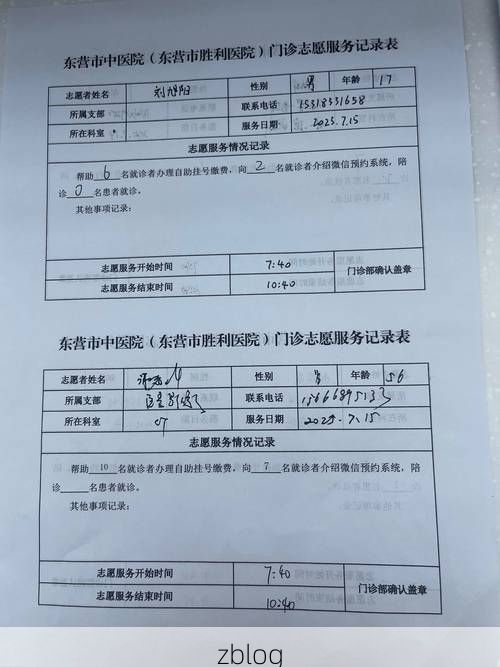 东营市中医院（东营市胜利医院）门诊志愿服务记录表
志愿者姓名 刘旭阳 性别 男 年龄 17
所属支部 联系电话 15318331658
所在科室 服务日期 2025.7.15
志愿服务情况记录
帮助 6 名就诊者办理自助挂号缴费，向 2 名就诊者介绍微信预约系统，陪
诊 0 名患者就诊。
其他事项记录：
志愿服务开始时间 7:40
门诊部确认盖章
志愿服务结束时间 10:40
东营市中医院（东营市胜利医院）门诊志愿服务记录表
志愿者姓名 性别 男 年龄 56
所属支部 联系电话
所在科室 服务日期 2025.7.15
志愿服务情况记录
帮助 10 名就诊者办理自助挂号缴费，向 7 名就诊者介绍微信预约系统，陪
诊 名患者就诊。
其他事项记录：
志愿服务开始时间 7:40
门诊部确认盖章
志愿服务结束时间 10:40
zblog